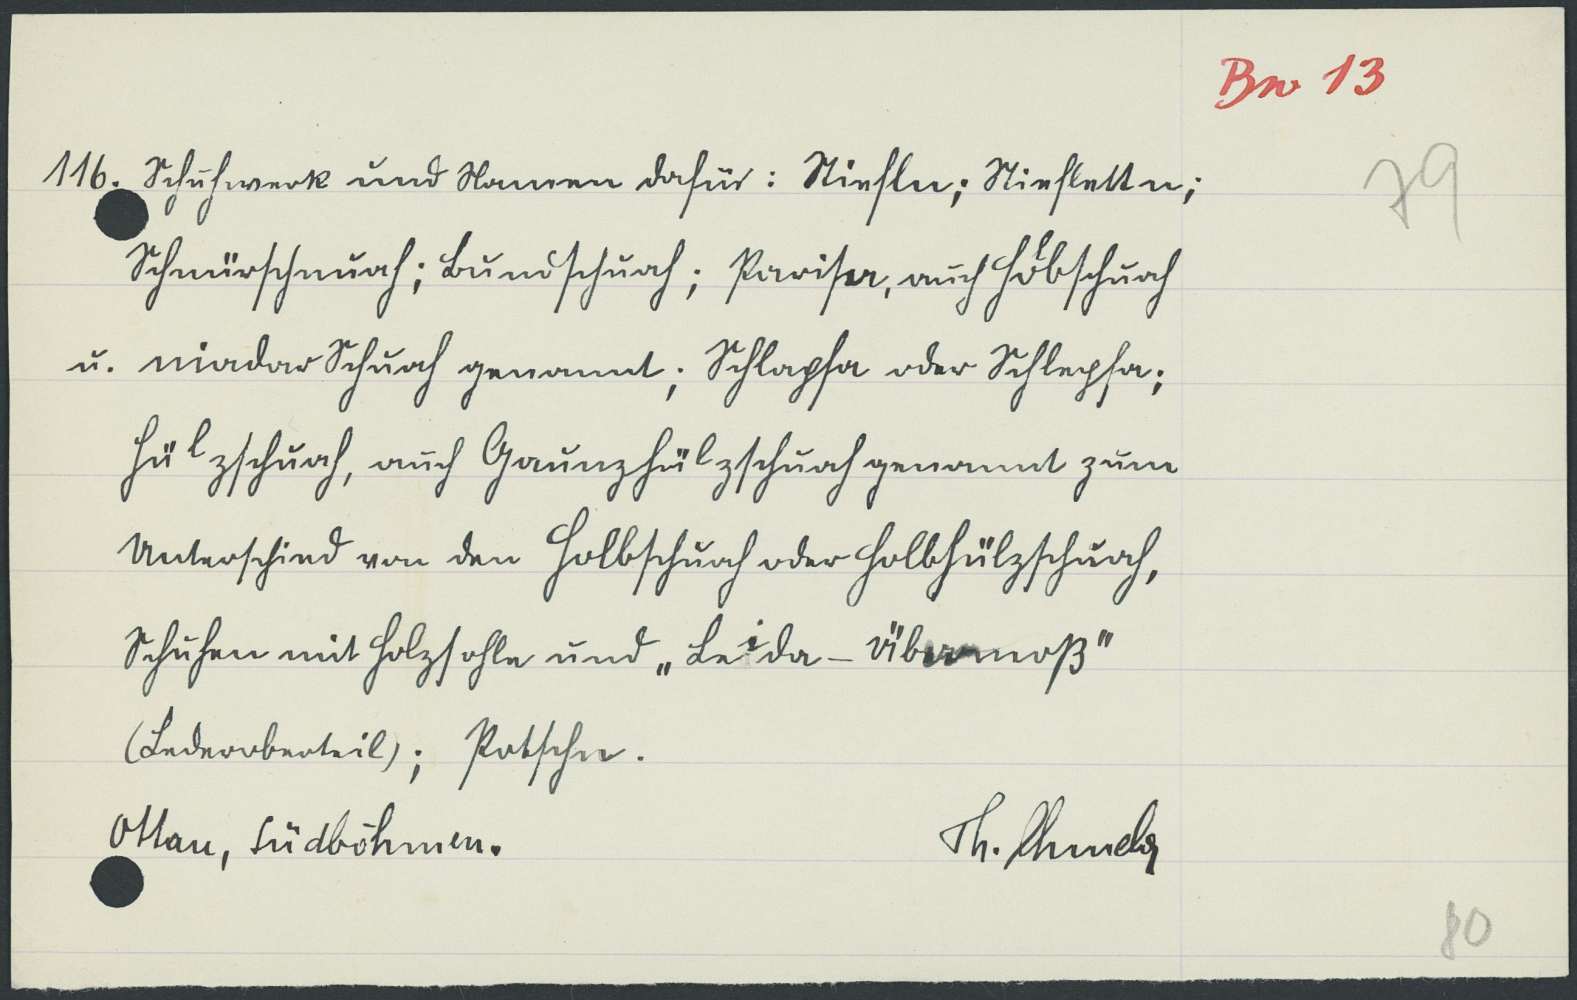 Bw 13
79
116. Schuhwerk und Namen dafür: Stiefln; Stieflettn;
Schnürschuach; Bundschuach; Pariser, auch Hölbschuach
u. niadar Schuach genannt; Schlapfa oder Schlepfa;
Hülzschuach, auch Gaunzhülzschuach genannt zum
Unterschied von den Holbschuach oder Holbhülzschuach,
Schuhen mit Holzsohle und „Leida-Übermoß"
(Lederoberteil); Potschn.
Ottau, Südböhmen.
Th. Chmela
80